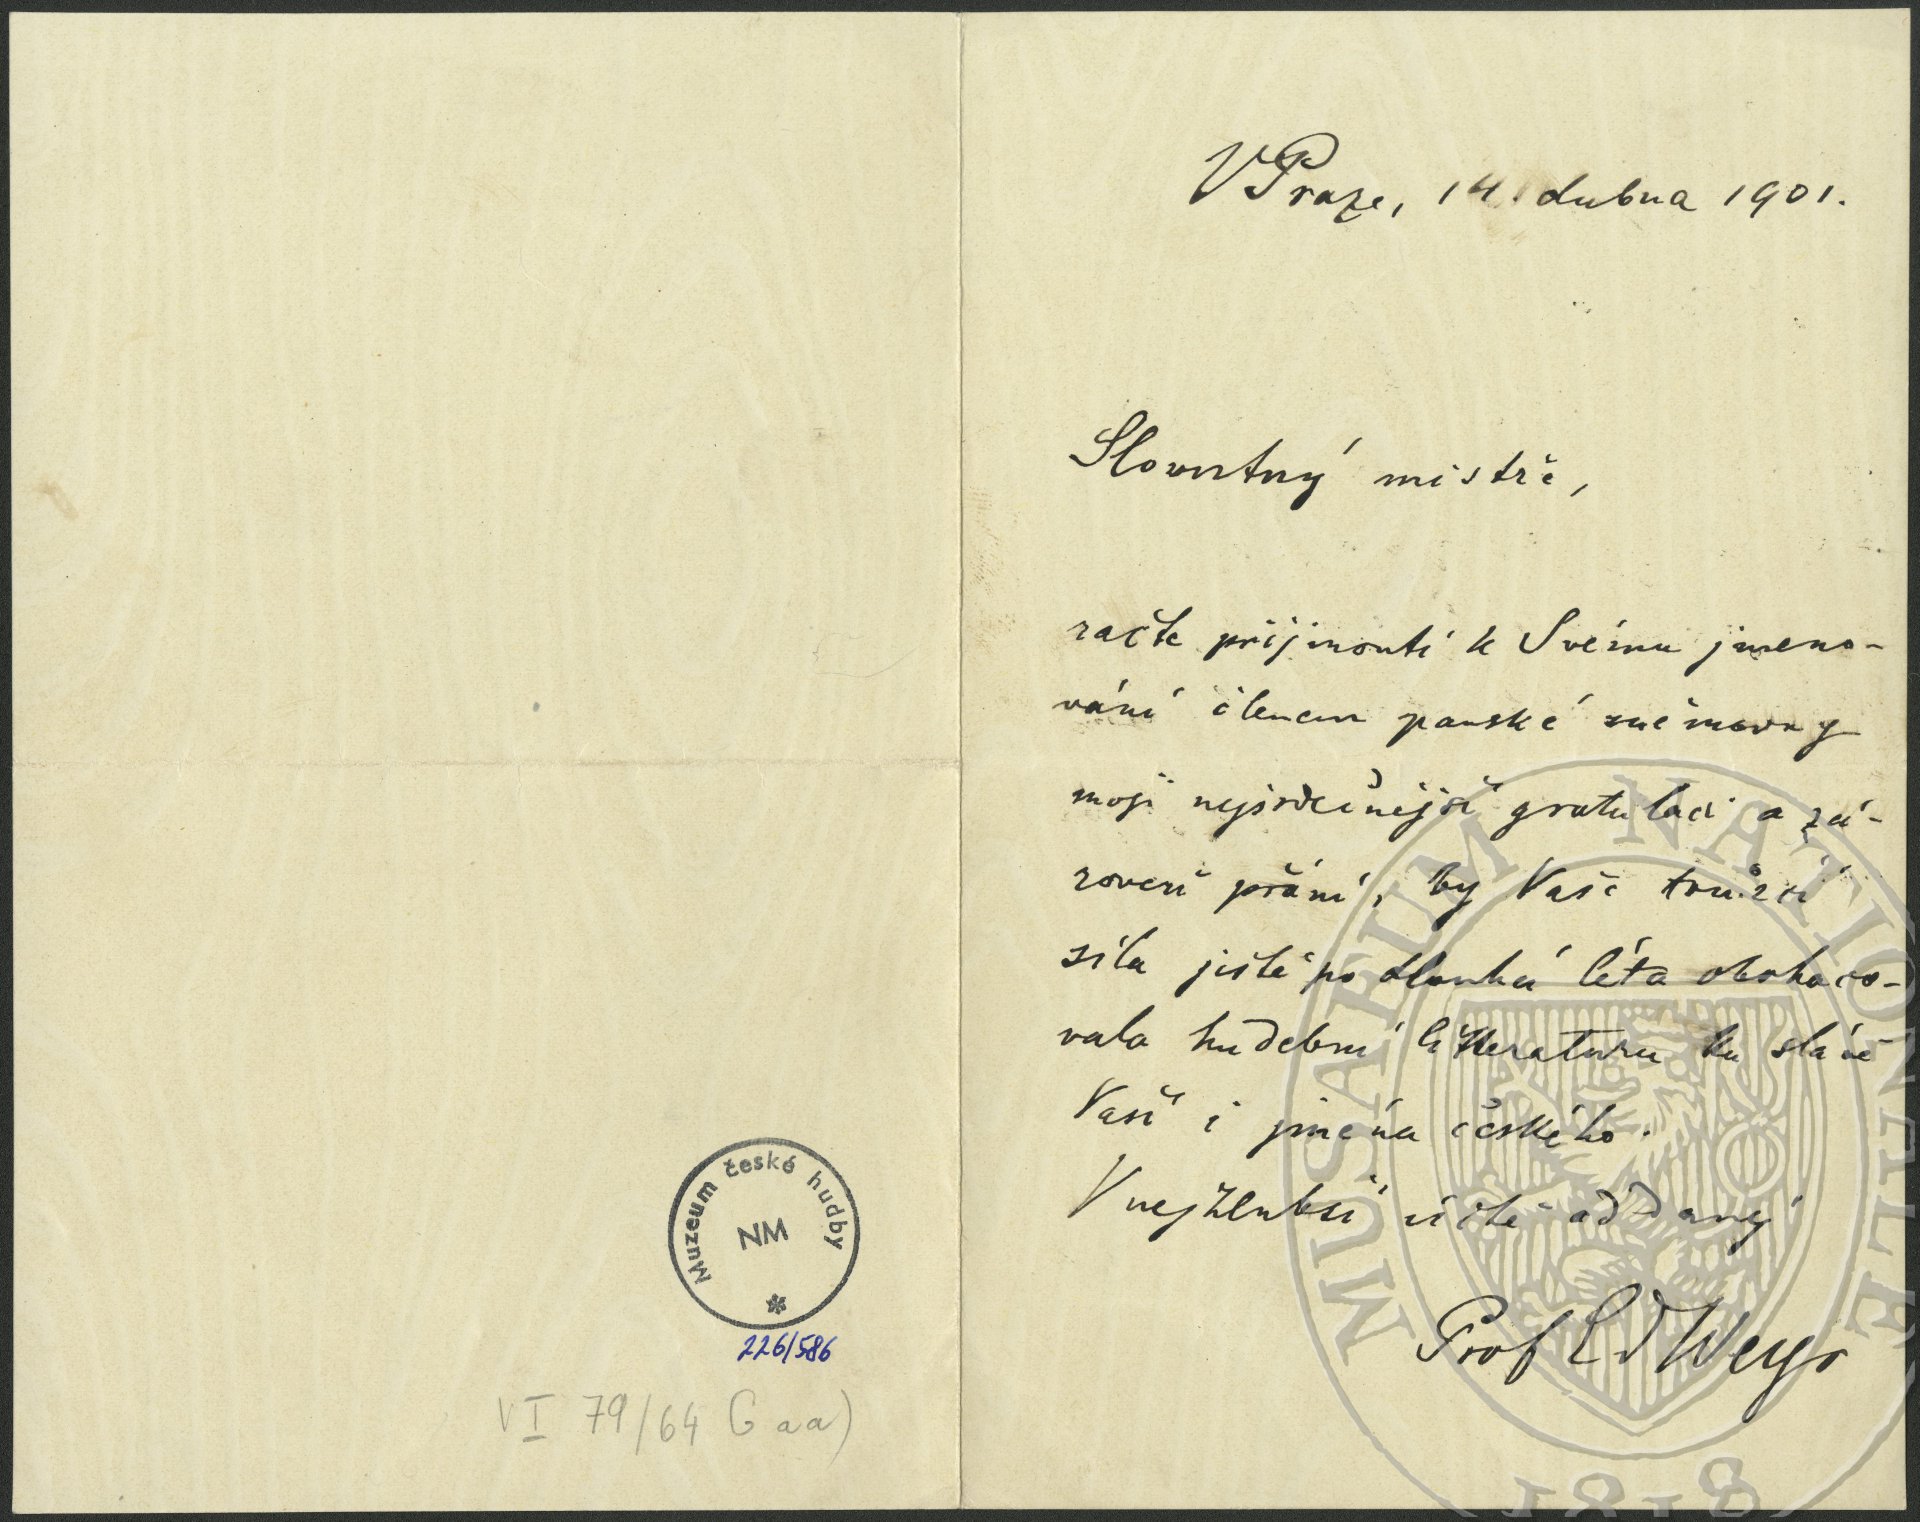 Muzeum české hudby
NM
226/586
VI 79/64 G aa)
V Praze, 14. dubna 1901.
Slovutný mistře,
račte přijmouti k Svému jmeno-
vání členem panské sněmovny
moji nejsrdečnější gratulaci a zá-
roveň přání, by Vaše tvůrčí
síla ještě po dlouhá léta obohaco-
vala hudební litteraturu ku slávě
Vaší i jména českého.
V nejhlubší úctě oddaný
Prof Ed Weyr
MUSAEUM NATIONALE
1818